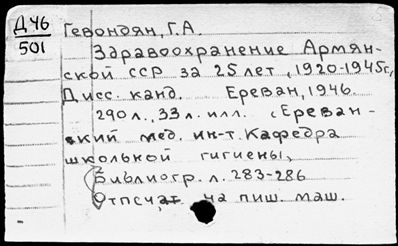 Д46
501
Гевондян, Г.А.
Здравоохранение Армян-
ской ССР за 25 лет, 1920-1945г.,
Дисс. канд. Ереван, 1946.
290 л., 33 л. илл. (Ереван-
ский мед. ин-т. Кафедра
школьной гигиены,
Библиогр. л. 283-286
Отпечат. на пиш. маш.